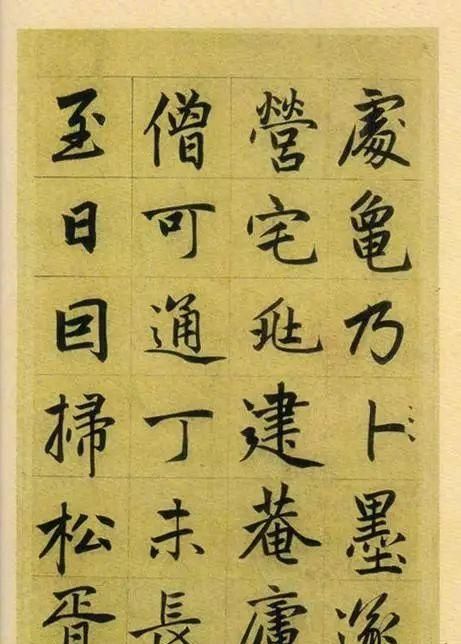 處龜乃卜墨
營宅兆建菴
僧可通丁未長
至日因掃松胥